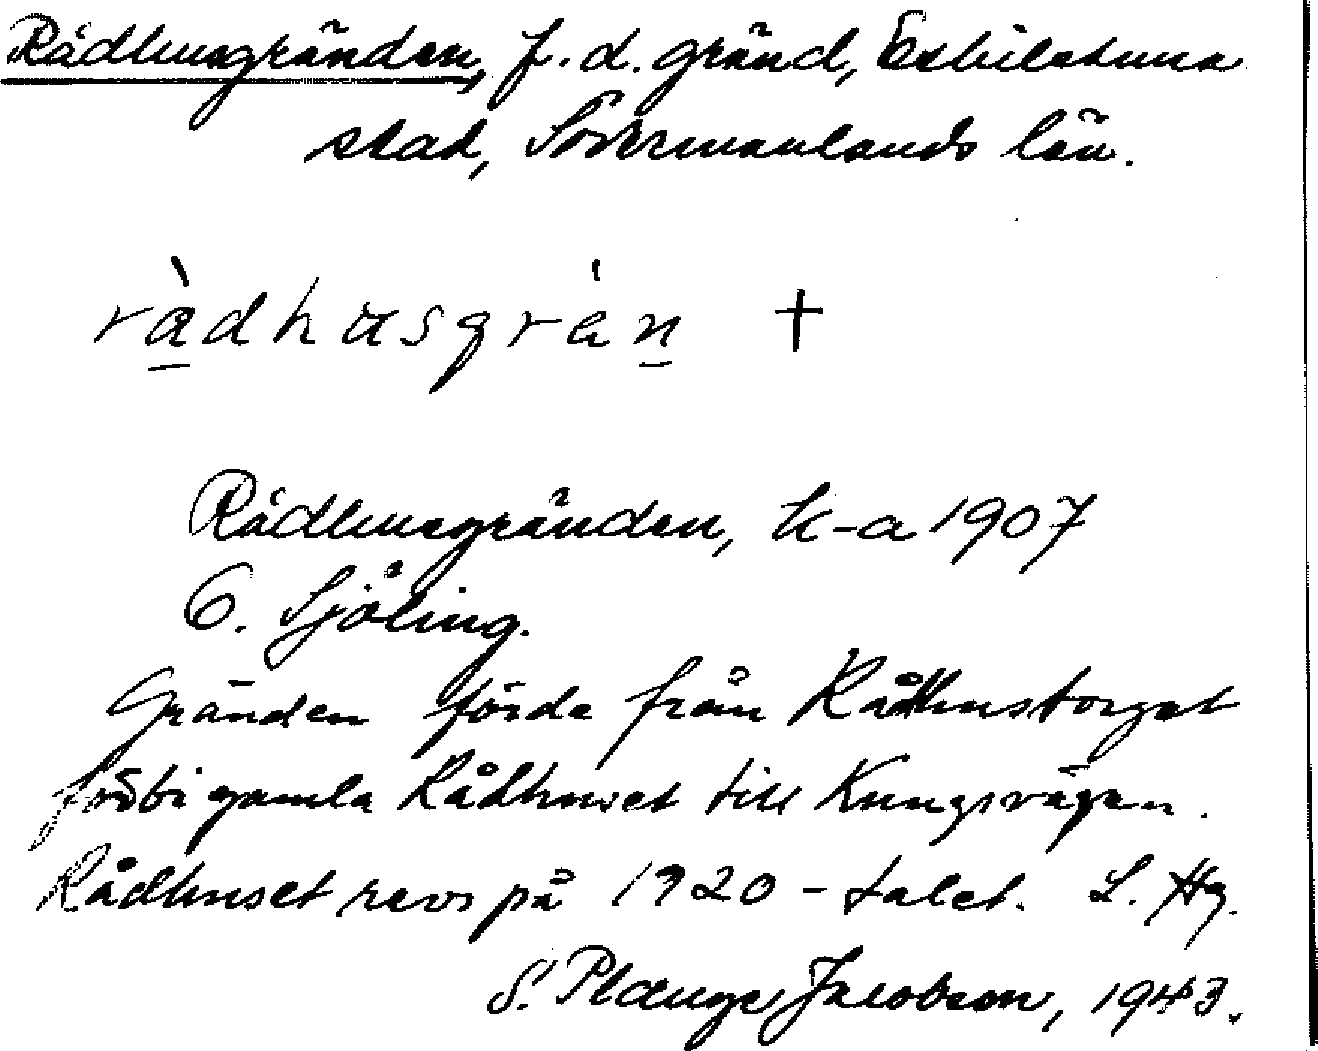 Rådhusgränden, f. d. gränd, Eskilstuna
stad, Södermanlands län.
ràdhusgrän †
Rådhusgränden, k-a 1907
O. Sjöling.
Gränden förde från Rådhustorget
förbi gamla Rådhuset till Kungsvägen.
Rådhuset revs på 1920-talet. L. Hg.
S. Plænge Jacobson, 1943.